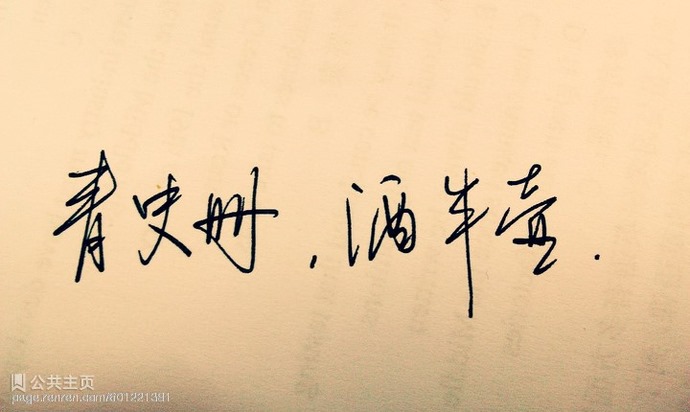 青史册，酒半壶.
公共主页
page.renren.com/601221391